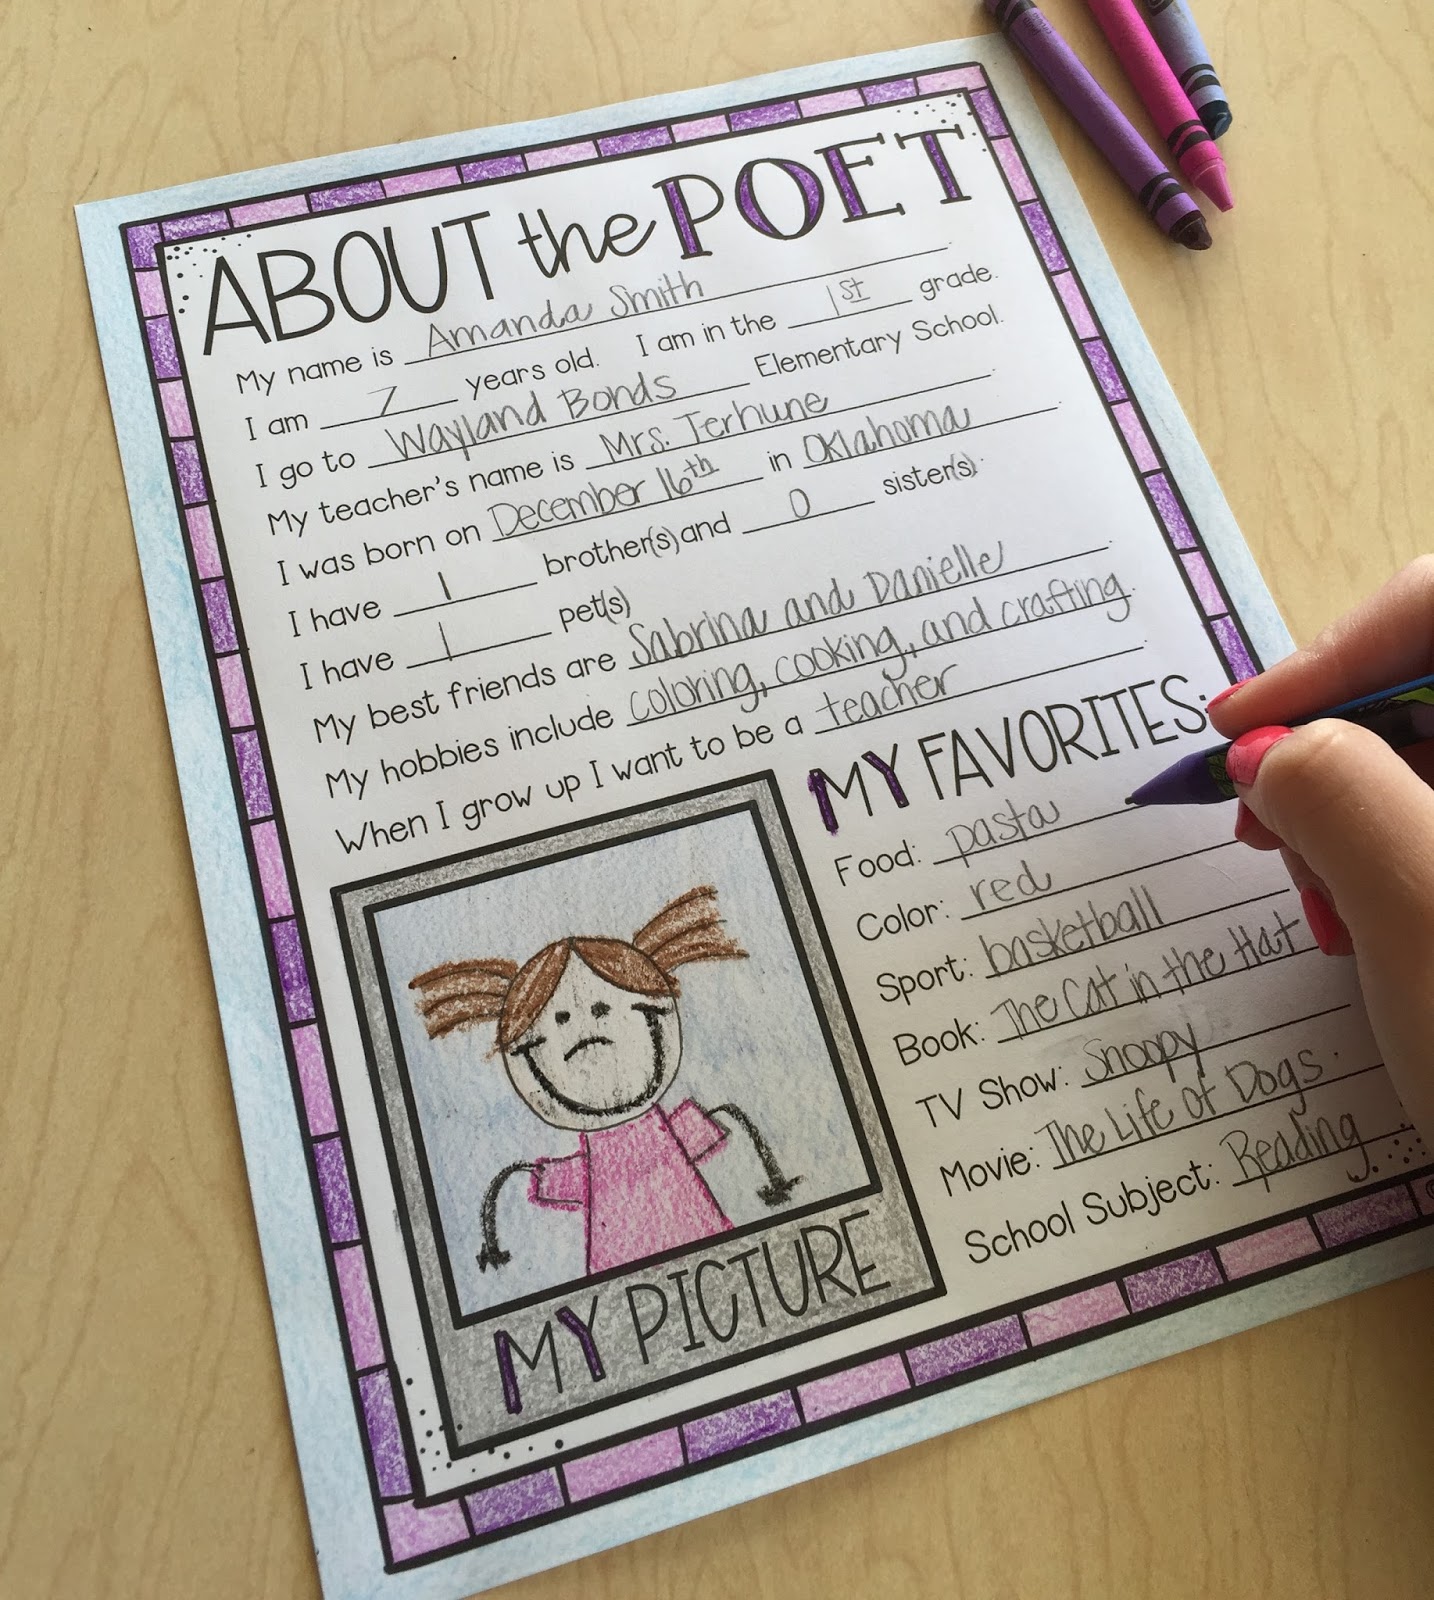 ABOUT the POET
My name is Amanda Smith.
I am 7 years old. I am in the 1st grade.
I go to Wayland Bonds Elementary School.
My teacher's name is Mrs. Terhune.
I was born on December 16th in Oklahoma.
I have 1 brother(s) and 0 sister(s).
I have 1 pet(s)
My best friends are Sabrina and Danielle.
My hobbies include coloring, cooking, and crafting.
When I grow up I want to be a teacher.
MY FAVORITES:
Food: pasta
Color: red
Sport: basketball
Book: The Cat in the Hat
TV Show: Snoopy
Movie: The Life of Dogs
School Subject: Reading
MY PICTURE